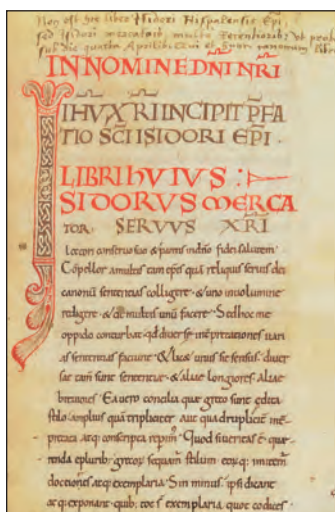 Non est hic liber Isidori Hispalensis Epi,
sed Isidori mercatoris, multo recentioris
IN NOMINE DNI NRI
IHU XRI INCIPIT PFA
TIO SCI ISIDORI EPI.
LIBRI HUIUS :
SIDORUS MERCA
TOR SERVUS XRI
lectori conservo suo & parens in dno fidei salutem
Copellor a multis tam epis quā reliquis servis dei
canonū sententias colligere. & uno in volumine
redigere. & de multis unū facere. Sed hoc me
oppido conturbat. qd diverse interpretationes vari
as sententias faciunt. & licet unus sit sensus. diver
sae tam sunt sententiae. & aliae longiores aliae
breviores. Ea vero concilia que greco sunt edita
stilo. amplius quā tripliciter aut quadruplicit inter
pretata atq; conscripta repim. Quod si veritas e que
renda e plurib; grecor sequam stilum eorq; imitem
doctiones atq; exemplaria. Sin minus ipsi dicant
atq; exponant. quib; tot st exemplaria. quot codices